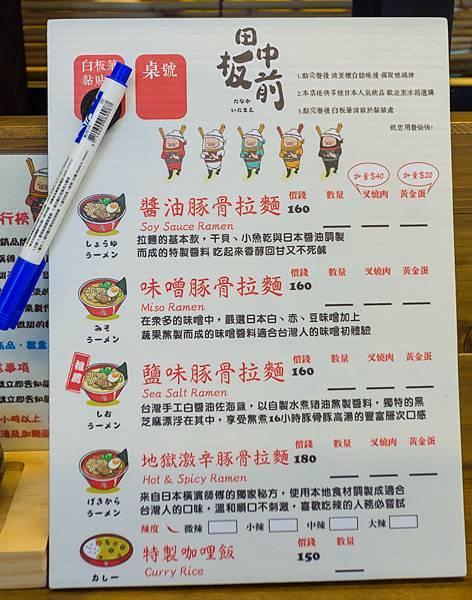 白板筆
黏貼
桌號
田中
板前
たなか
いたまえ
1.點完餐後 請至櫃台結帳後 領取號碼牌
2.本店提供多種日本人氣飲品 歡迎至冰箱選購
3.點完餐後 白板筆請歸於黏貼處
祝您用餐愉快!
加量$40 加量$20
醬油豚骨拉麵 價錢 數量 叉燒肉 黃金蛋
160
Soy Sauce Ramen
拉麵的基本款,干貝、小魚乾與日本醬油調製
而成的特製醬料 吃起來香醇回甘又不死鹹
しょうゆ
ラーメン
味噌豚骨拉麵 價錢 數量 叉燒肉 黃金蛋
160
Miso Ramen
在眾多的味噌中,嚴選日本白、赤、豆味噌加上
蔬果熬製而成的味噌醬料適合台灣人的味噌初體驗
みそ
ラーメン
推薦
鹽味豚骨拉麵 價錢 數量 叉燒肉 黃金蛋
160
Sea Salt Ramen
台灣手工白醬油佐海鹽,以自製水煮豬油熬製醬料,獨特的黑
芝麻漂浮在其中,享受熬煮16小時豚骨豚高湯的豐富層次口感
しお
ラーメン
地獄激辛豚骨拉麵 價錢 數量 叉燒肉 黃金蛋
180
Hot & Spicy Ramen
來自日本橫濱師傅的獨家秘方,使用本地食材調製成適合
台灣人的口味,溫和順口不刺激,喜歡吃辣的人務必嘗試
げきから
ラーメン
辣度 微辣 小辣 中辣 大辣
特製咖哩飯 價錢 數量
150
Curry Rice
カレー